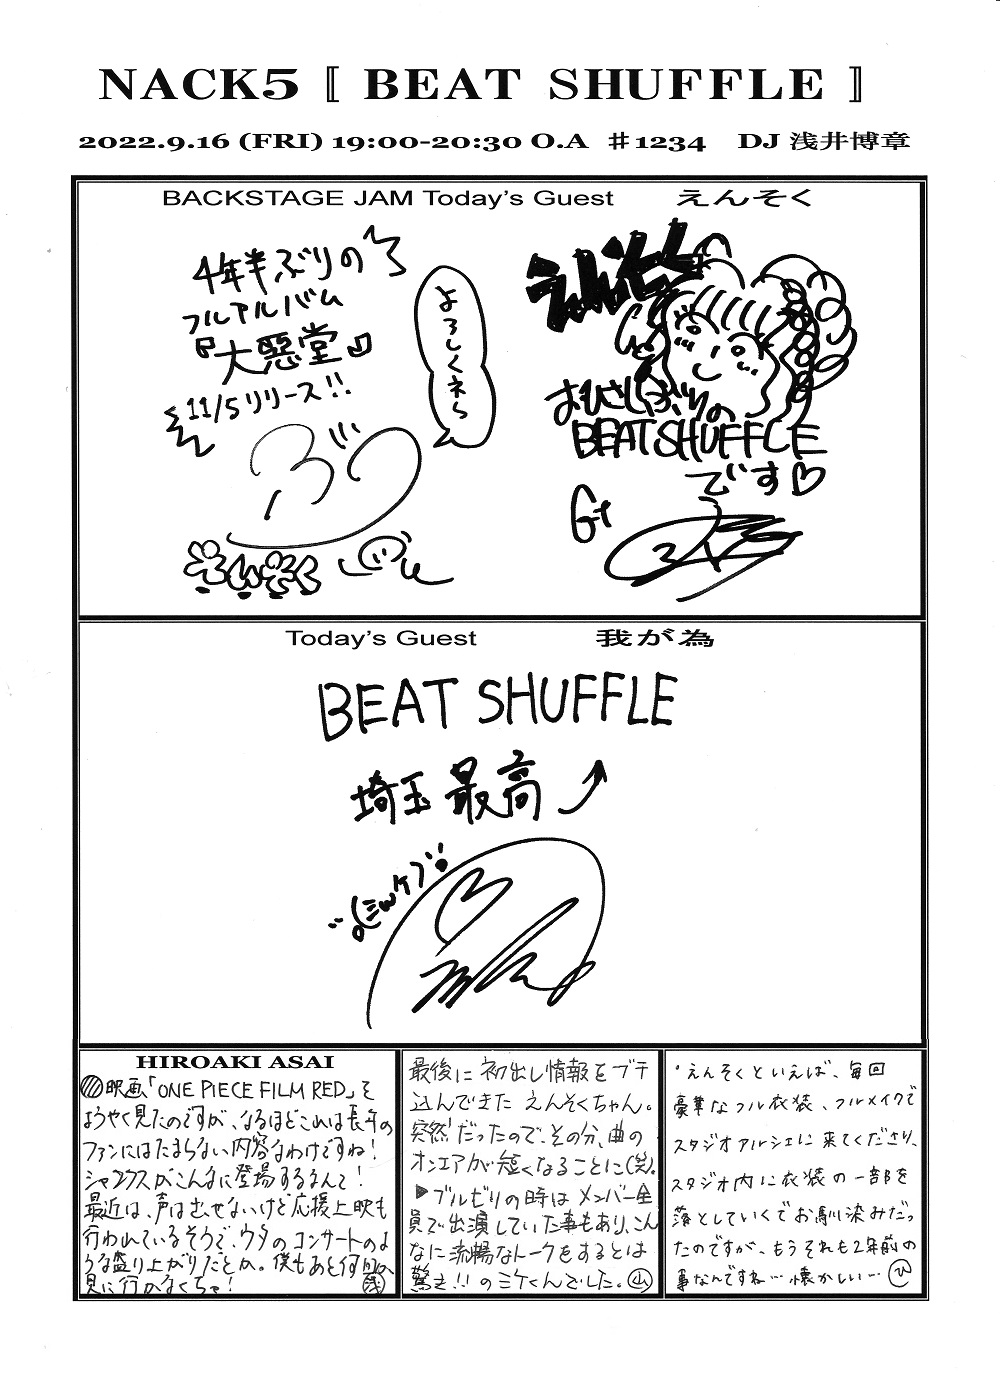 NACK5 〚 BEAT SHUFFLE 〛
2022.9.16 (FRI) 19:00-20:30 O.A ＃1234 DJ 浅井博章
BACKSTAGE JAM Today's Guest えんそく
4年半ぶりの
フルアルバム
『大悪堂』
11/5リリース!!
よろしくネら
ぶう
えんそく
えんそく
おひさしぶりの
BEATSHUFFLE
です♡
Gt
Today's Guest 我が為
BEAT SHUFFLE
埼玉最高
HIROAKI ASAI
映画「ONE PIECE FILM RED」を
ようやく見たのですが、なるほどこれは長年の
ファンにはたまらない内容なわけですね!
シャンクスがこんなに登場するなんて!
最近は、声は出せないけど応援上映も
行われているそうで、ウタのコンサートのよ
うな盛り上がりだとか。僕もあと何回か
見に行かなくちゃ! 浅
最後に初出し情報をブチ
込んできた えんそくちゃん。
突然だったので、その分、曲の
オンエアが短くなることに(笑)。
▶ブルゼリの時はメンバー全
員で出演していた事もあり、こん
なに流暢なトークをするとは
驚き!!のミケくんでした。山
・えんそくといえば、毎回
豪華なフル衣装、フルメイクで
スタジオアルシェに来てくださり、
スタジオ内に衣装の一部を
落としていくでお馴染みだっ
たのですが、もうそれも2年前の
事なんですね…懐かしい… ひ